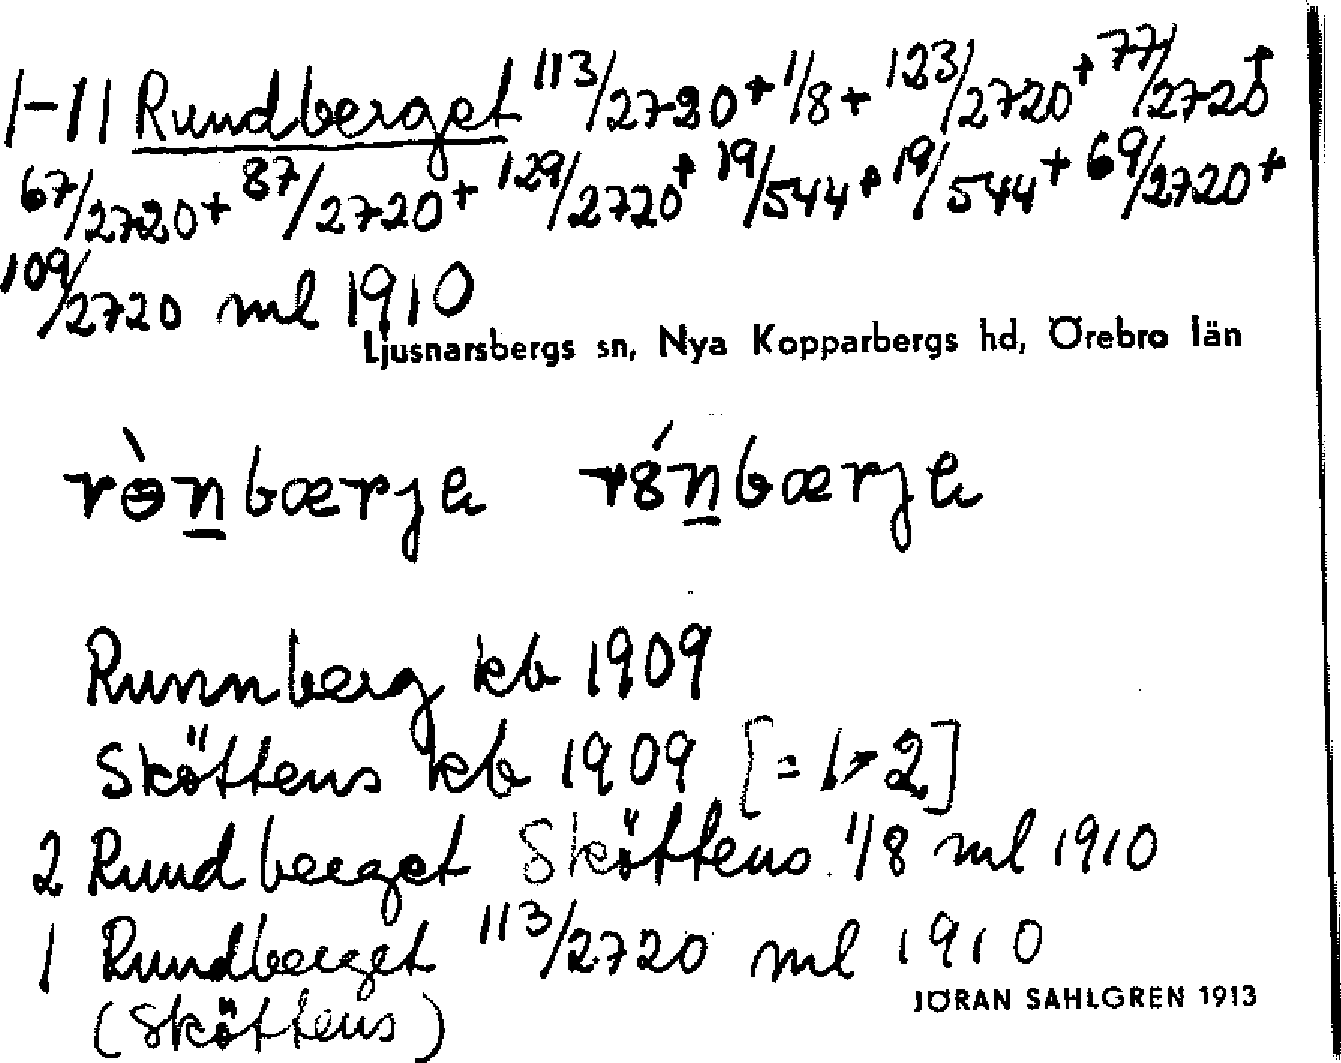 1-11 Rundberget 113/2720 + 1/8 + 123/2720 + 77/2720 +
67/2720 + 87/2720 + 129/2720 + 19/544 + 19/544 + 69/2720 +
109/2720 ml 1910
Ljusnarsbergs sn, Nya Kopparbergs hd, Örebro län
Runnberg kb 1909
Sköttens kb 1909 [= 1 > 2]
2 Rundberget Sköttens 1/8 ml 1910
1 Rundberget 113/2720 ml 1910
(Sköttens)
JÖRAN SAHLGREN 1913